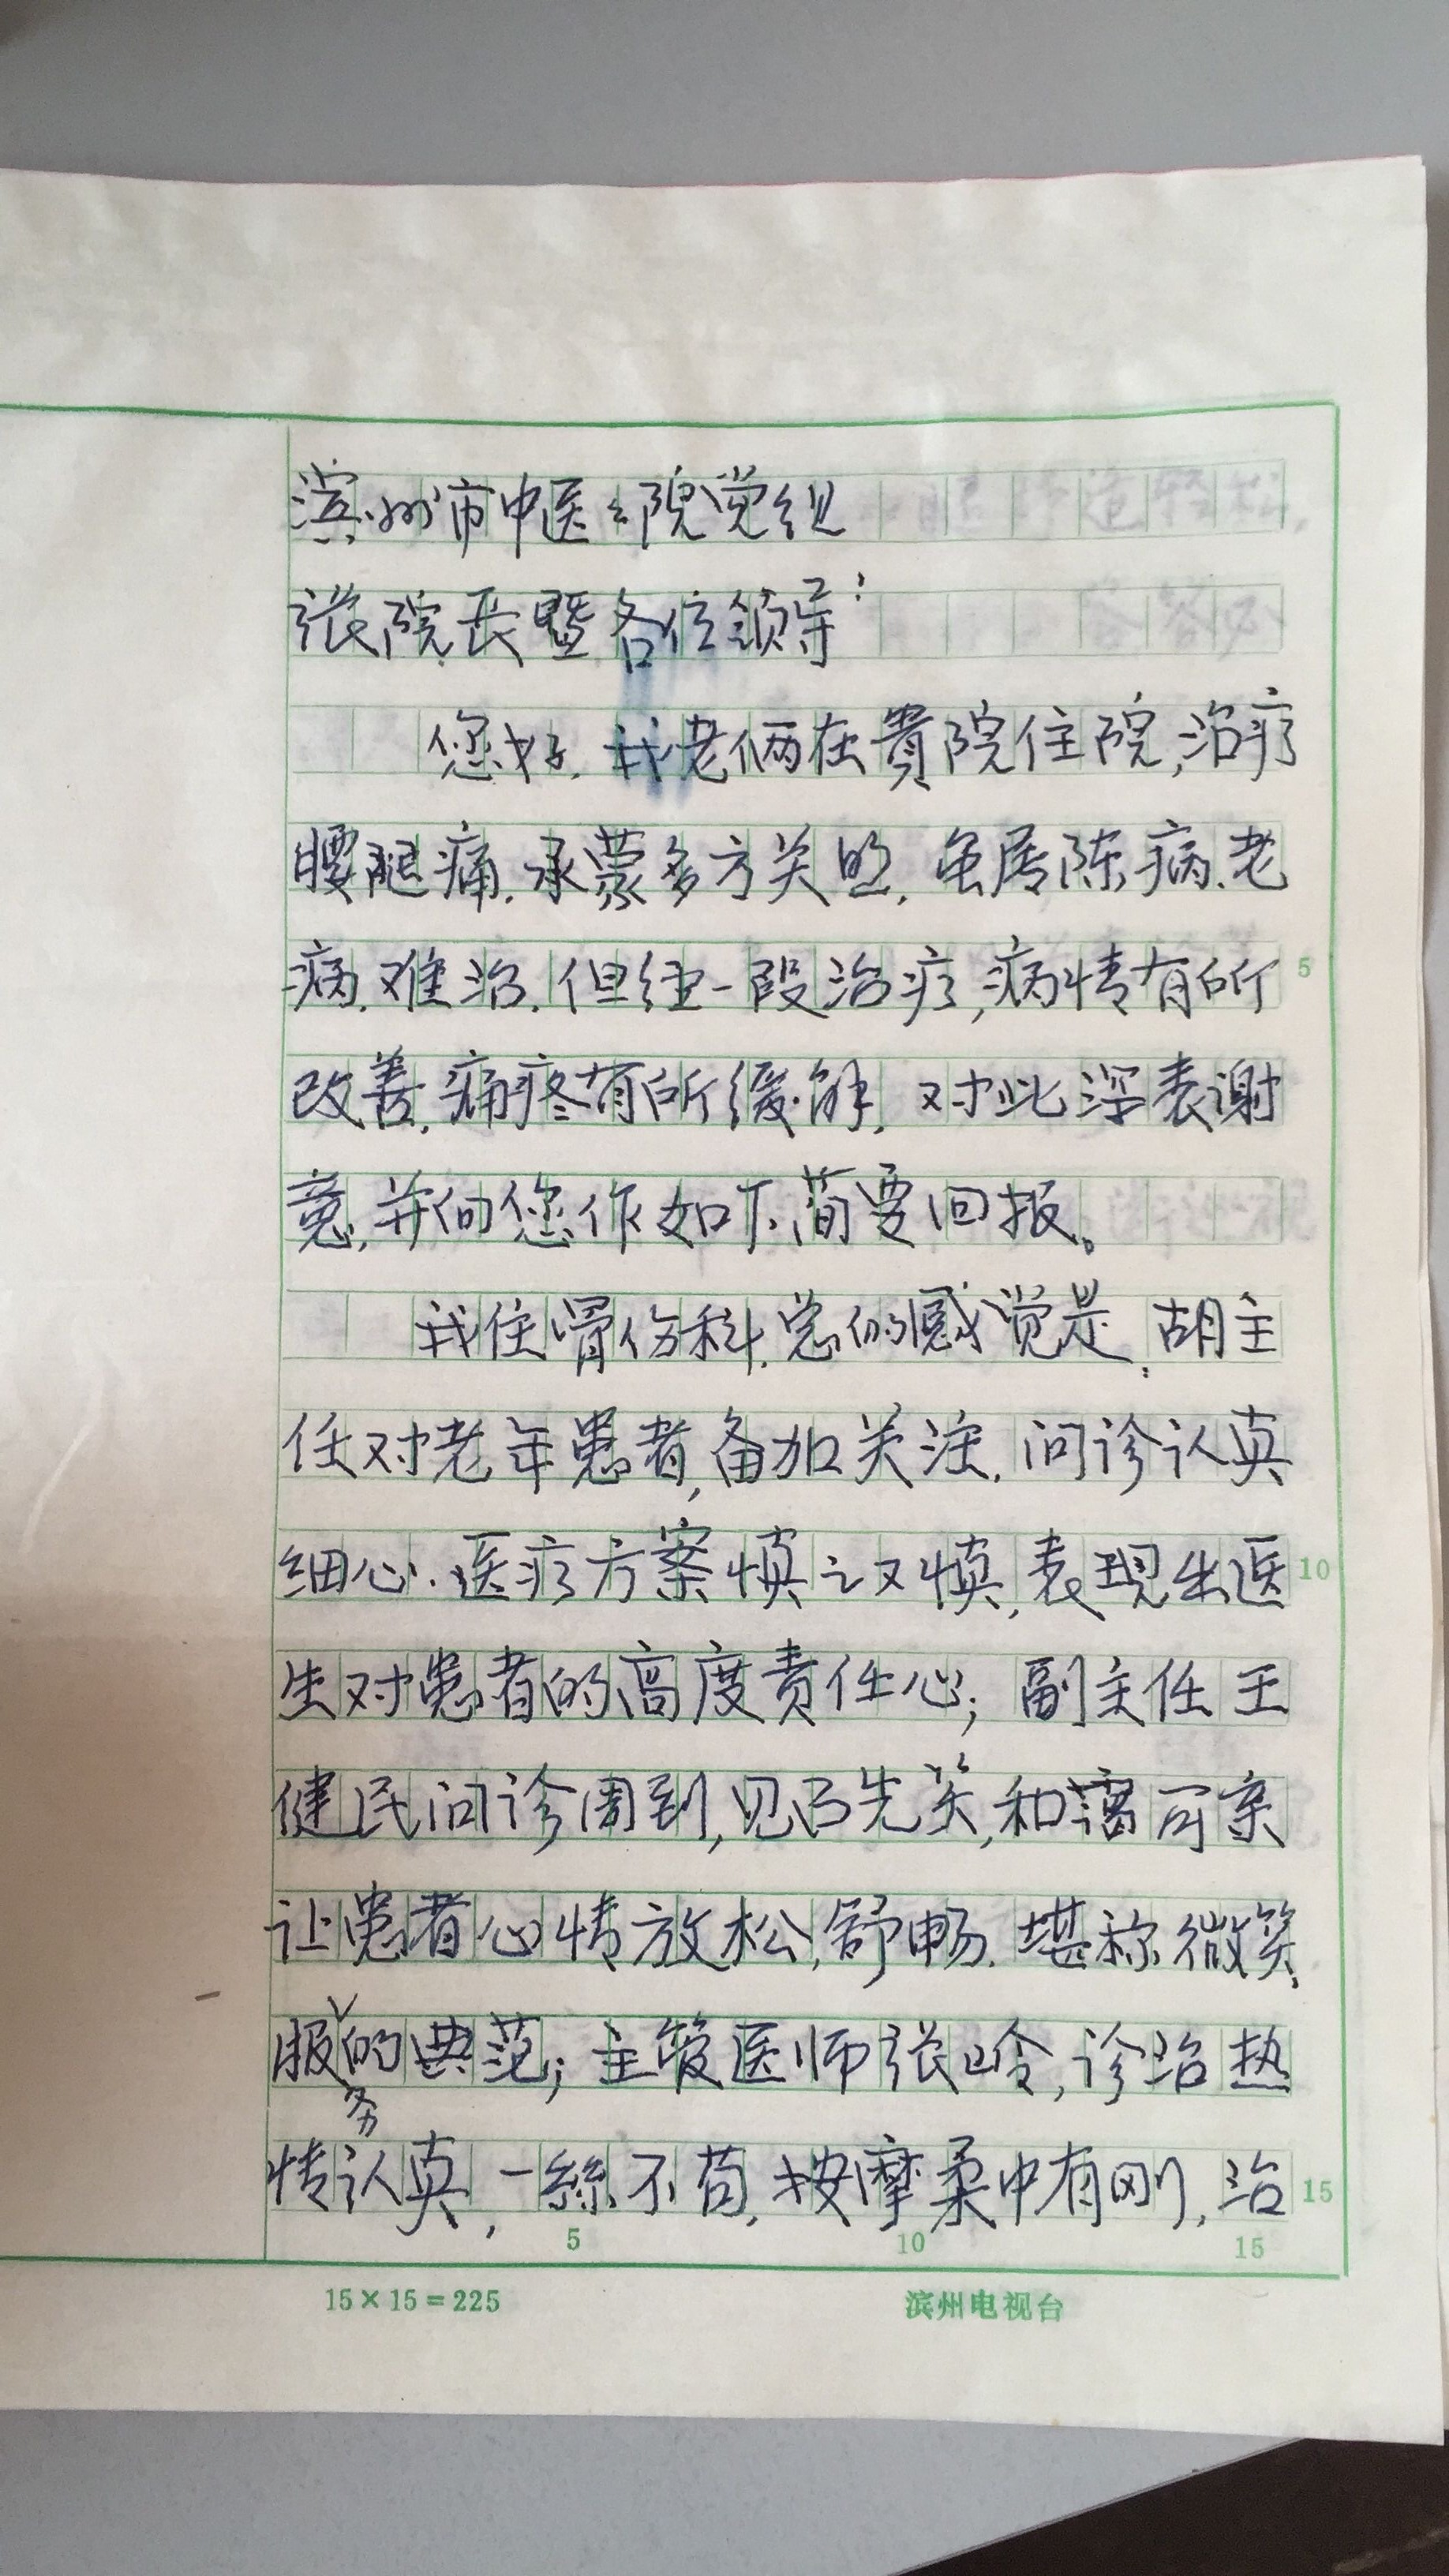 滨州市中医院党组
张院长暨各位领导:
您好.我老俩在贵院住院,治疗
腰腿痛.承蒙多方关照.虽居陈病.老
病.难治.但经一段治疗,病情有所 5
改善.痛疼有所缓解.对此深表谢
意.并向您作如下简要回报。
我住骨伤科.总的感觉是:胡主
任对老年患者,备加关注.问诊认真
细心.医疗方案慎之又慎,表现出医 10
生对患者的高度责任心;副主任王
健民问诊周到,见了先笑,和蔼可亲
让患者心情放松,舒畅.堪称微笑
服务的典范;主管医师张岭,诊治热
情认真,一絲不苟.按摩柔中有刚,治 15
5 10 15
15×15=225 滨州电视台